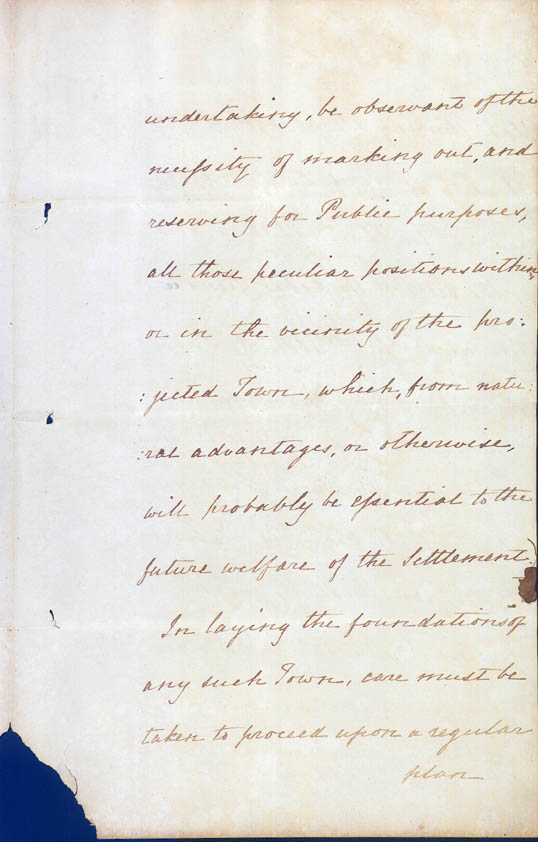 undertaking, be observant of the
necessity of marking out, and
reserving for Public purposes,
all those peculiar positions within,
or in the vicinity of the pro:
:jected Town, which, from natu:
:ral advantages, or otherwise,
will probably be essential to the
future welfare of the Settlement.
In laying the foundations of
any such Town, care must be
taken to proceed upon a regular
plan